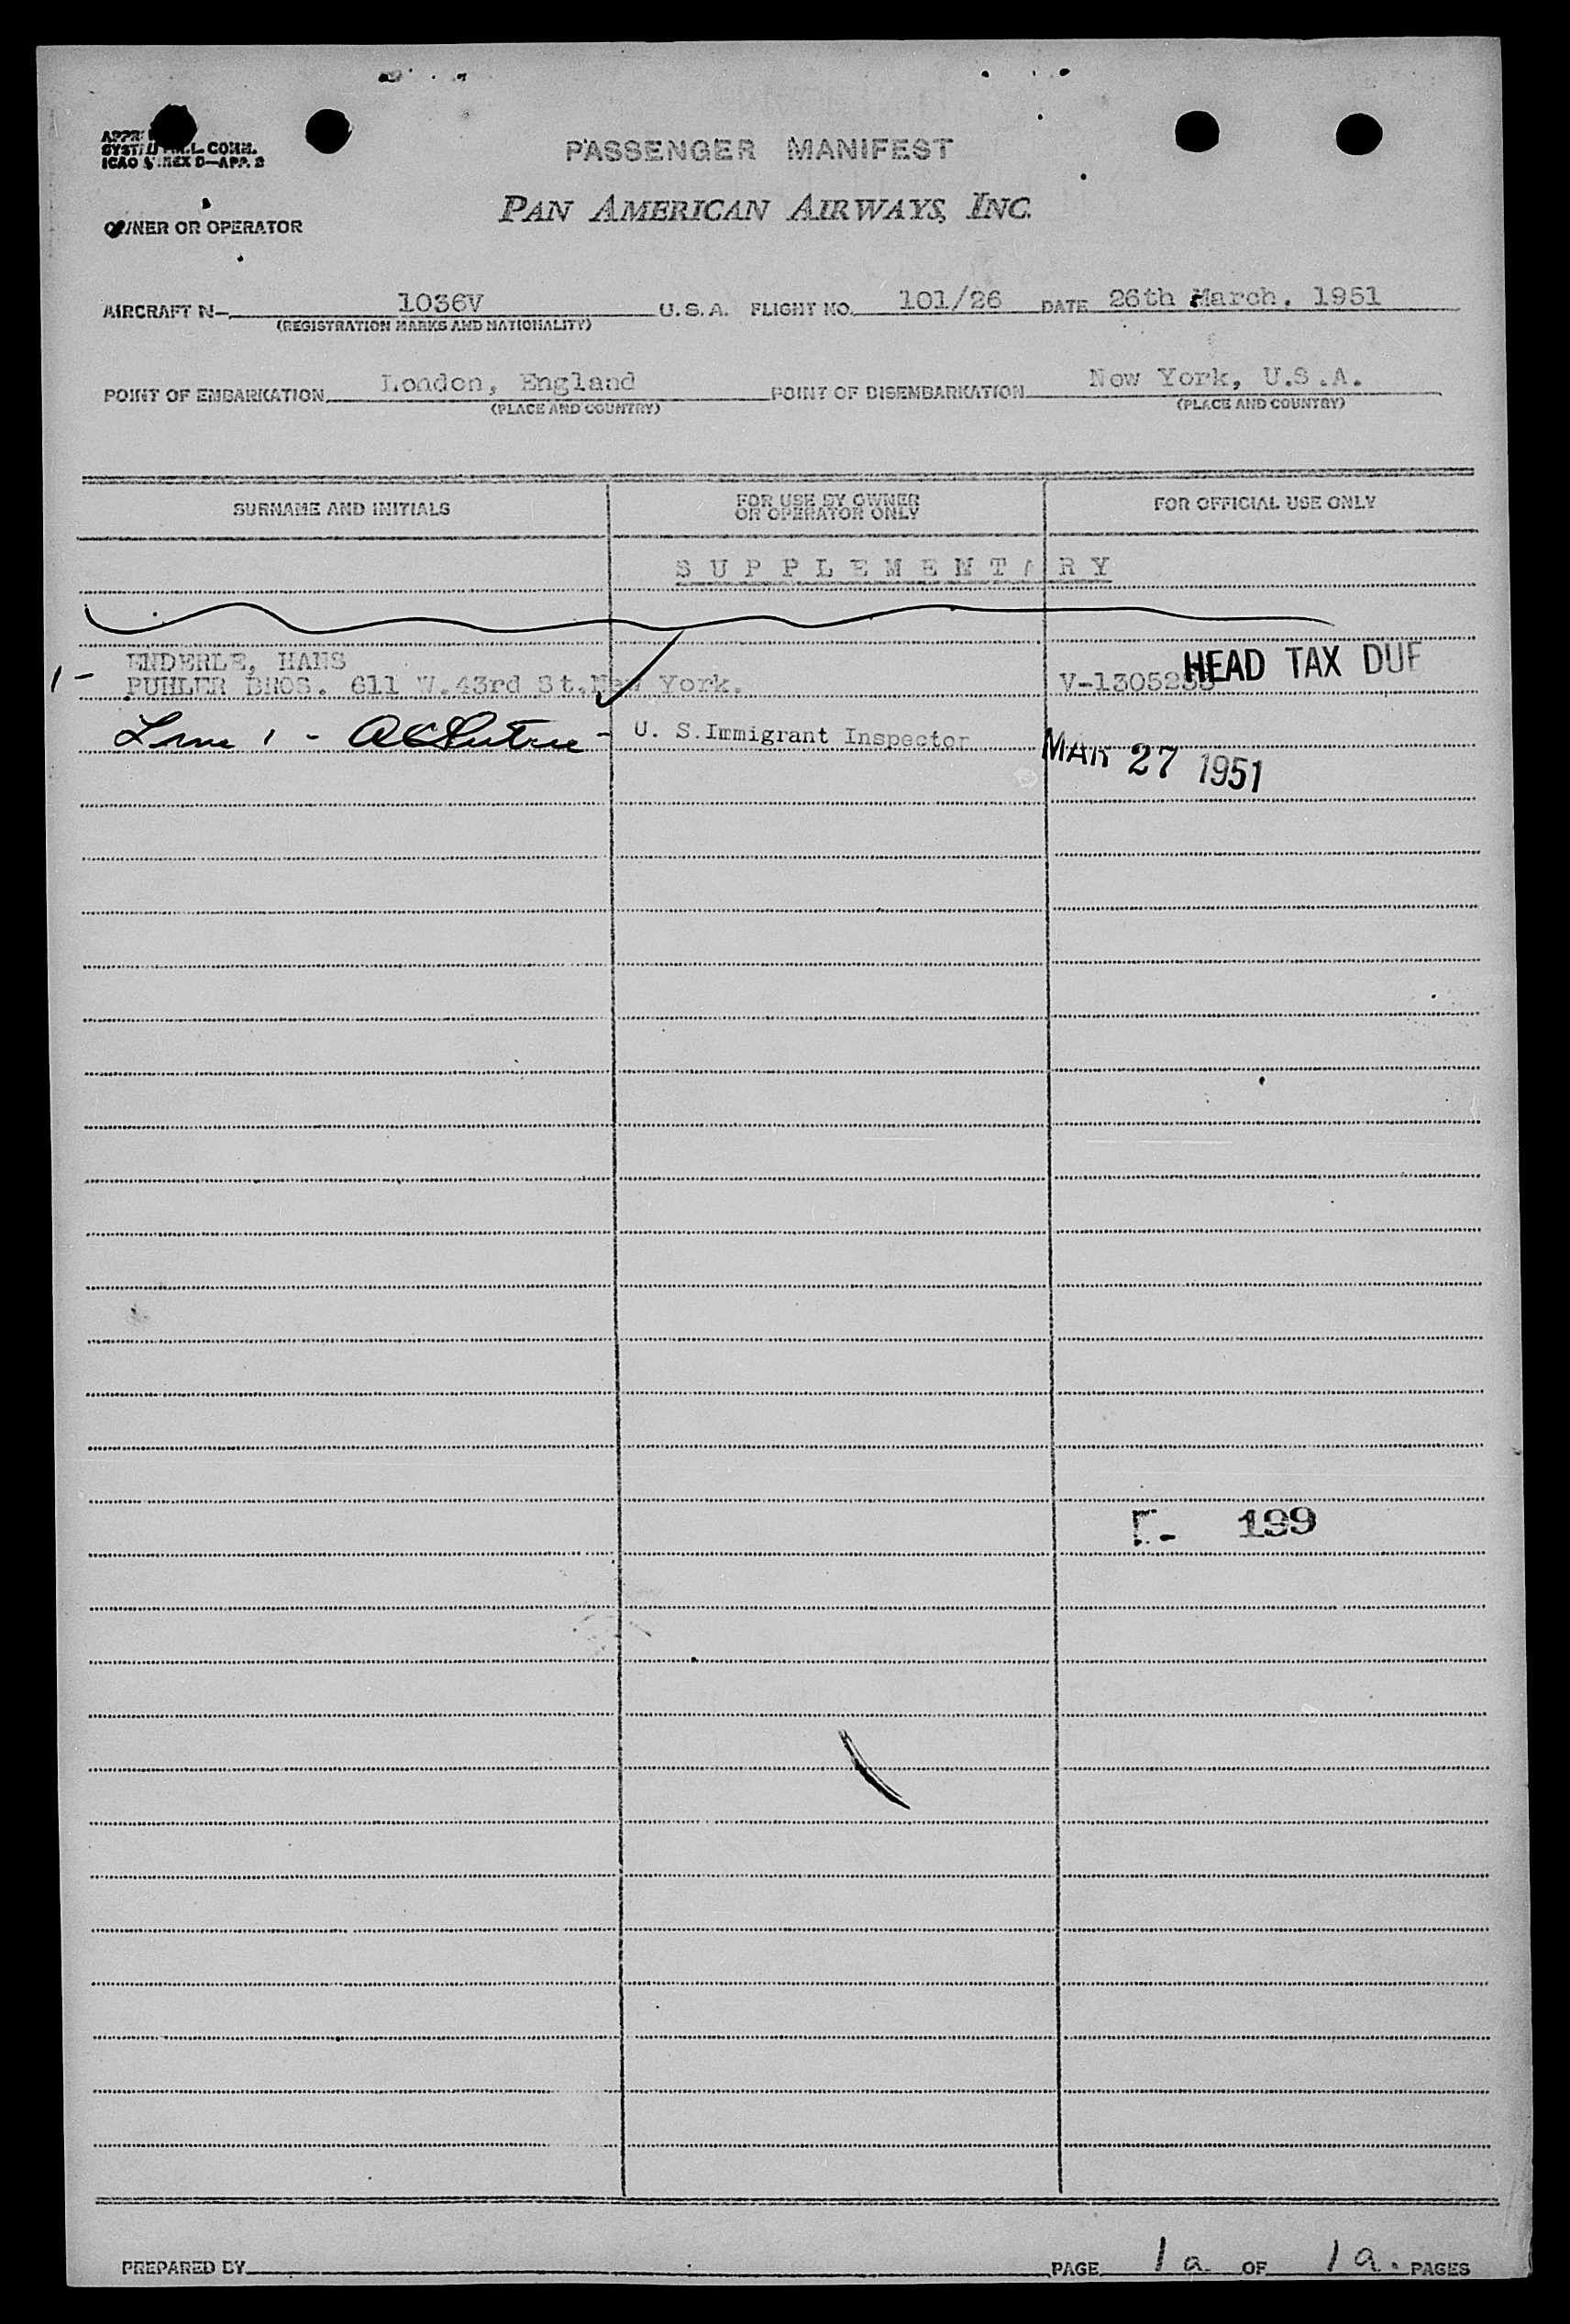 SYST
COMM.
ICAO ANNEX 9—APP. 3
PASSENGER MANIFEST
PAN AMERICAN AIRWAYS, INC.
OWNER OR OPERATOR
AIRCRAFT N- 1036V U.S.A. FLIGHT NO. 101/26 DATE 26th March. 1951
(REGISTRATION MARKS AND NATIONALITY)
POINT OF EMBARKATION London, England POINT OF DISEMBARKATION New York, U.S.A.
(PLACE AND COUNTRY) (PLACE AND COUNTRY)
SURNAME AND INITIALS FOR USE BY OWNER OR OPERATOR ONLY FOR OFFICIAL USE ONLY
SUPPLEMENTARY
ENDERLE, HANS HEAD TAX DUE
1- PUHLER BROS. 611 W.43rd St.New York.
Line 1 - U. S. Immigrant Inspector MAR 27 1951
199
PREPARED BY PAGE 1a OF 1a. PAGES